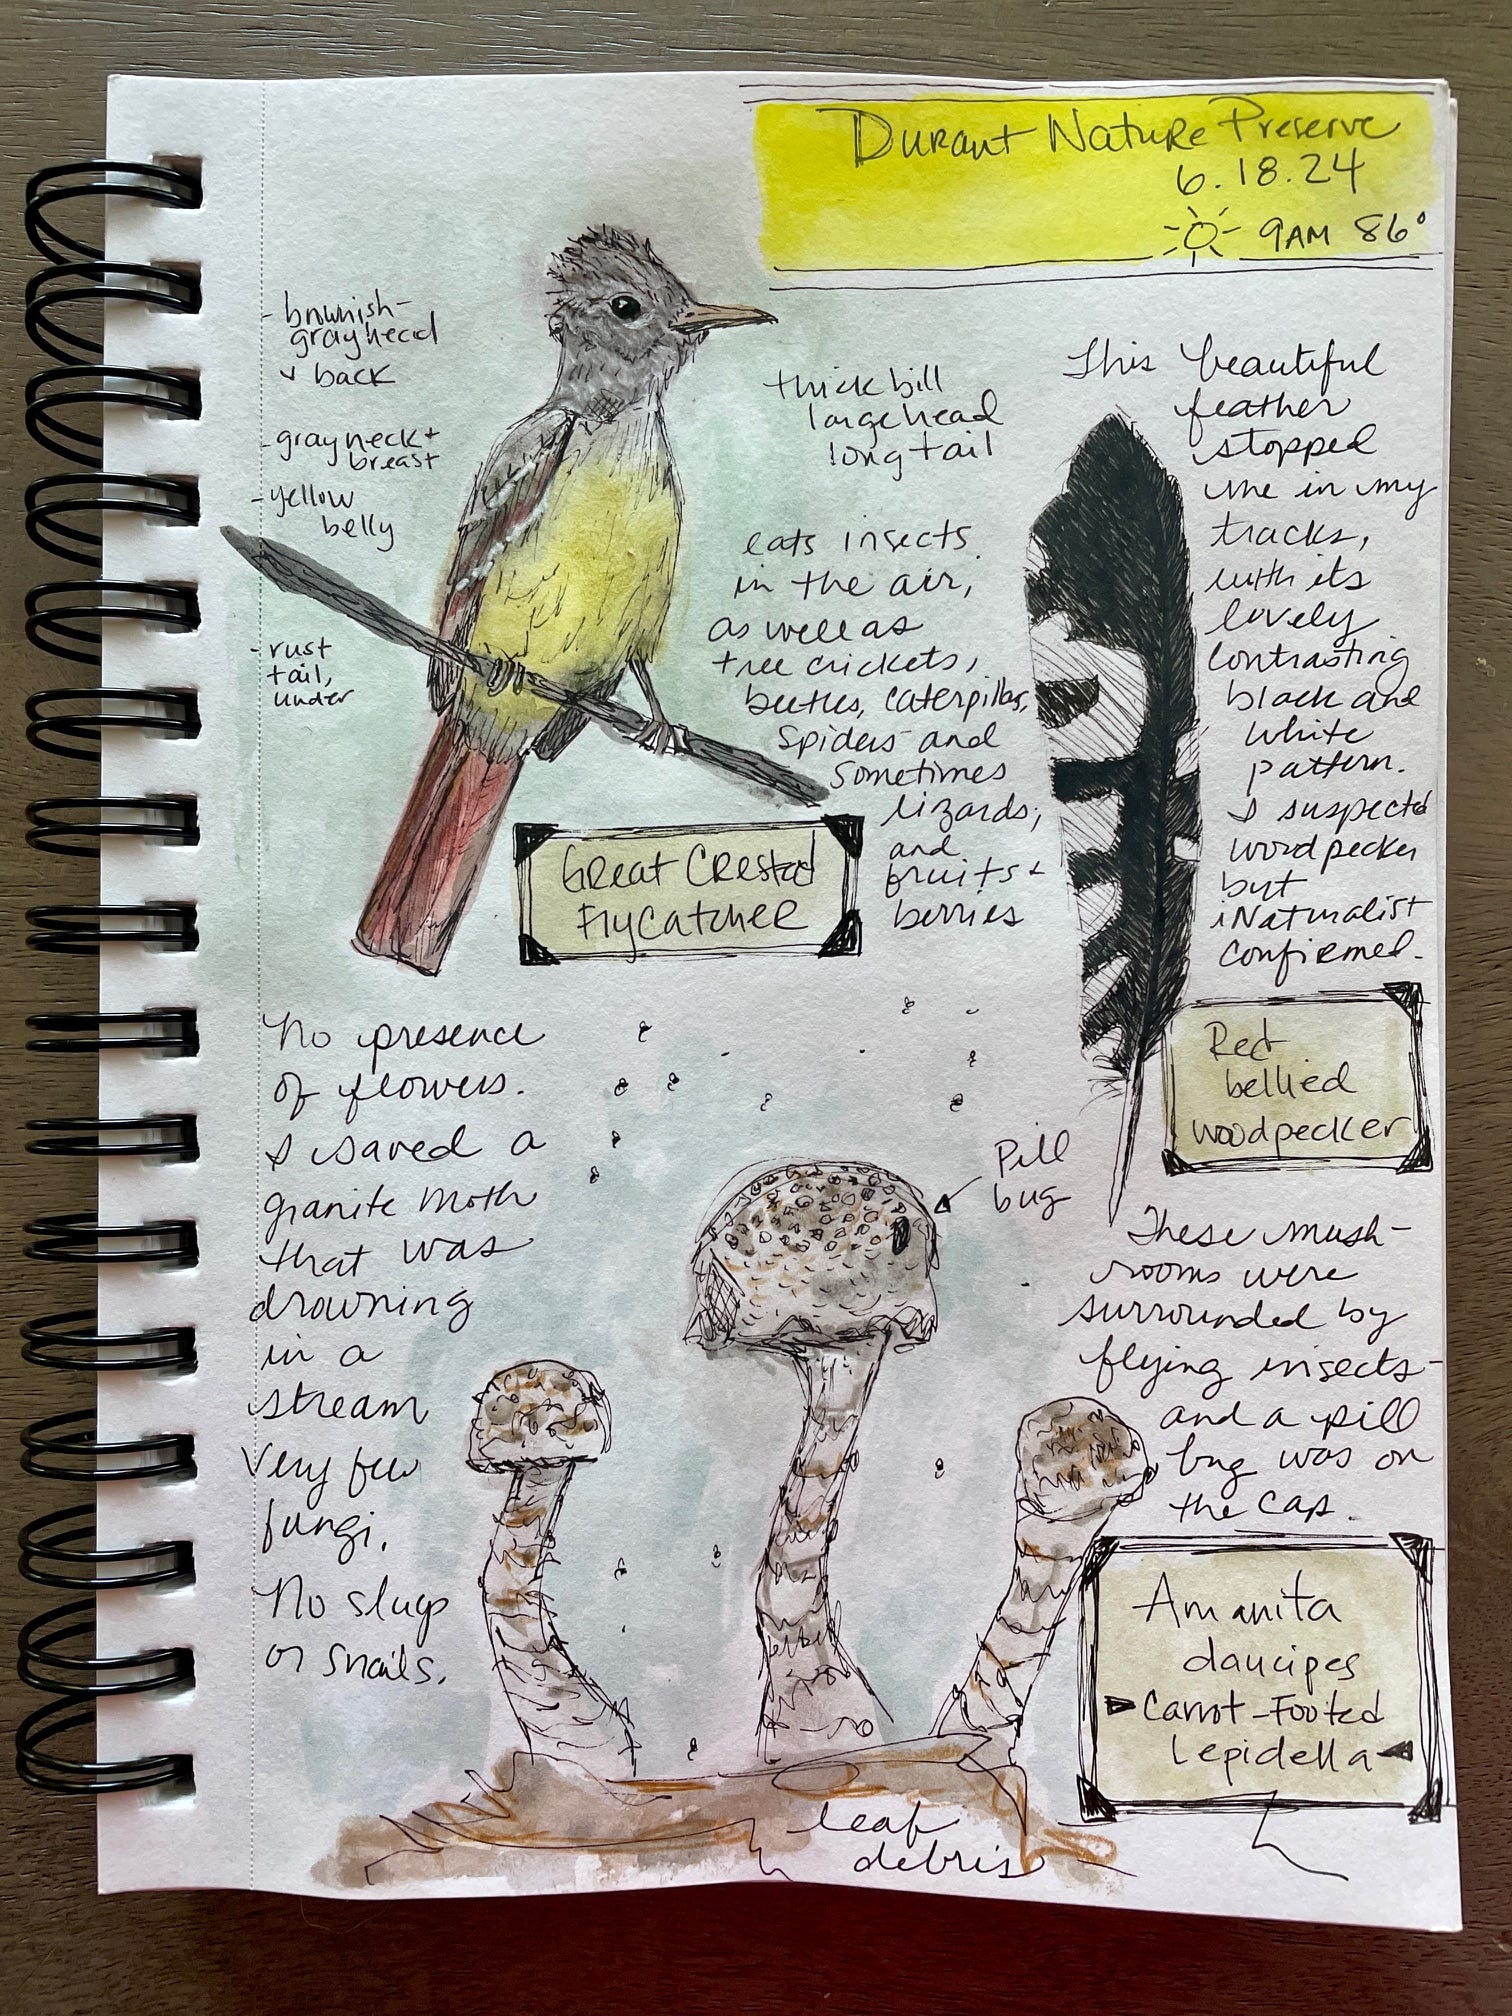 Durant Nature Preserve
6.18.24
9AM 86°
- brownish-
gray head
+ back
- gray neck +
breast
- yellow
belly
- rust
tail,
under
thick bill
large head
long tail
eats insects
in the air,
as well as
tree crickets,
beetles, caterpillars,
spiders and
sometimes
lizards,
and
fruits +
berries
Great Crested
Flycatcher
This beautiful
feather
stopped
me in my
tracks,
with its
lovely
contrasting
black and
white
pattern.
I suspected
woodpecker
but
iNaturalist
confirmed.
Red
bellied
woodpecker
No presence
of flowers.
I saved a
granite moth
that was
drowning
in a
stream
Very few
fungi.
No slugs
or snails.
Pill
bug
These mush-
rooms were
surrounded by
flying insects-
and a pill
bug was on
the cap.
Amanita
daucipes
Carrot-Footed
Lepidella
leaf
debris